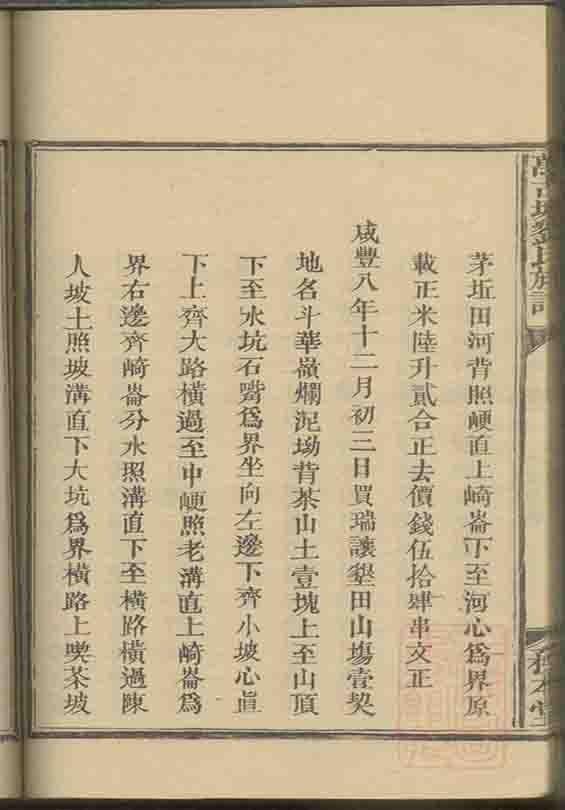 茅坵田河背照𪣻直上崎崙下至河心爲界原
載正米陸升貳合正去價錢伍拾肆串文正
咸豐八年十二月初三日買瑞讓墾田山塲壹契
地名斗華嶺爛泥坳背茶山土壹塊上至山頂
下至水坑石嘴爲界坐向左邊下齊小坡心直
下上齊大路橫過至中𪣻照老溝直上崎崙爲
界右邊齊崎崙分水照溝直下至橫路橫過陳
人坡土照坡溝直下大坑爲界橫路上喫茶坡
劉氏族譜